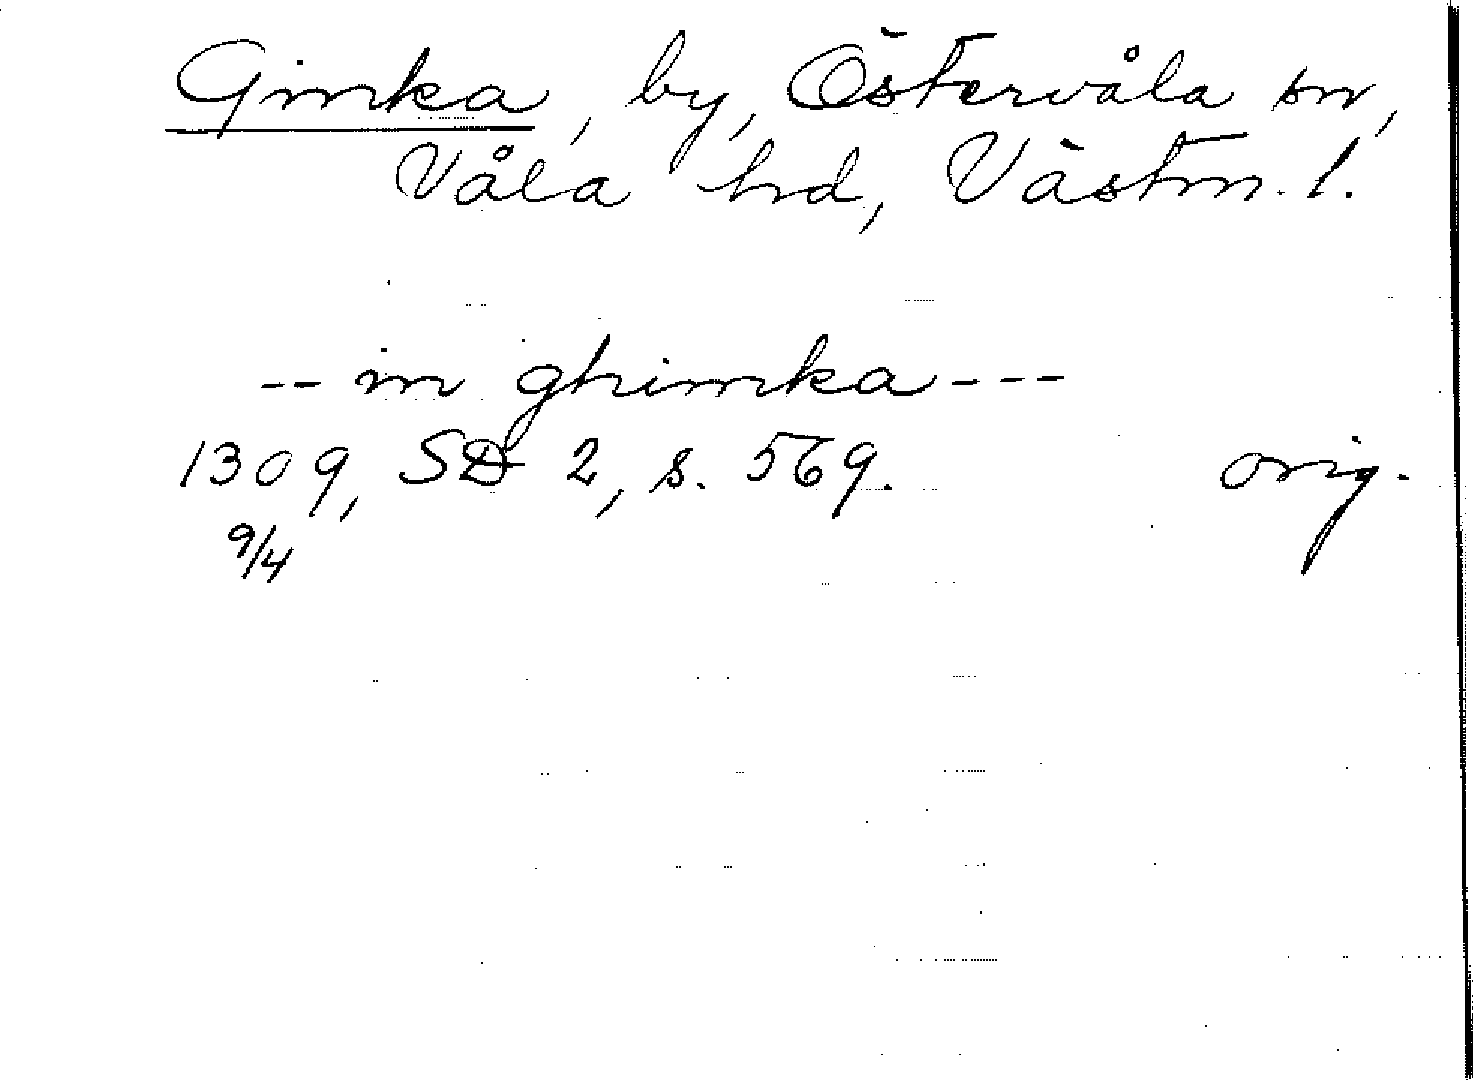 Gimka, by, Östervåla sn,
Våla hd, Västm. l.
-- in ghimka ---
1309, SD 2, s. 569. orig.
9/4